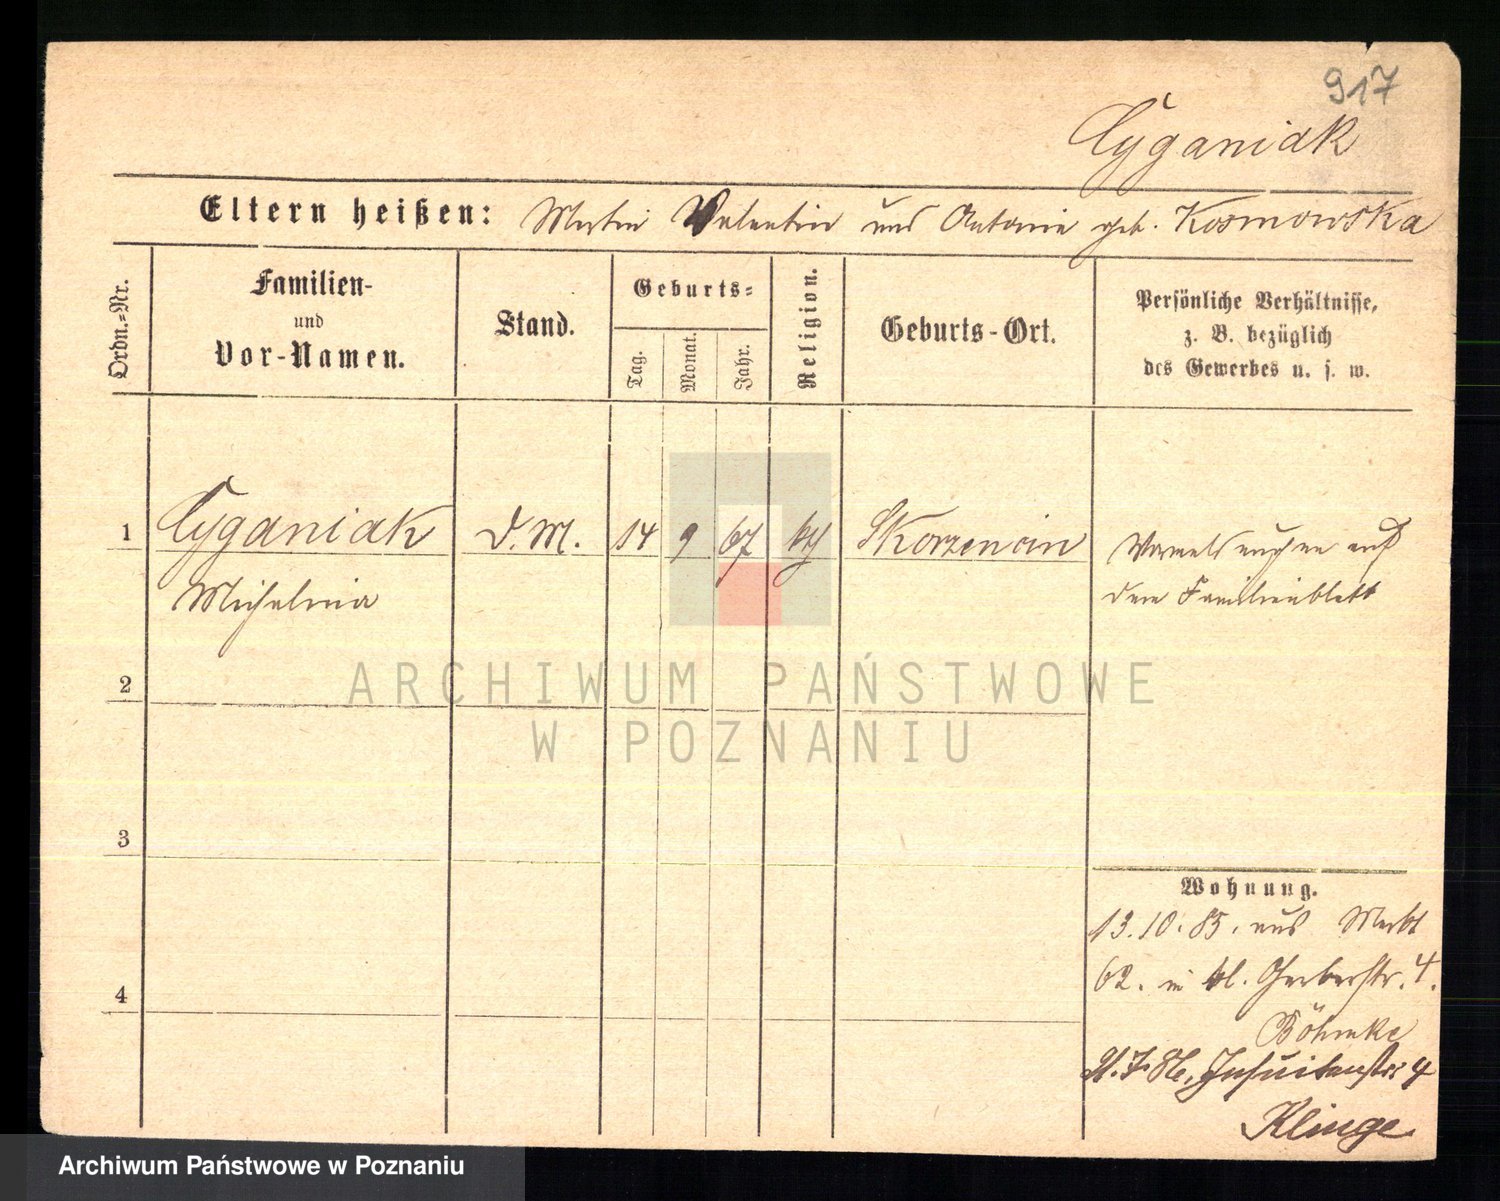 917
Cyganiak
Eltern heißen: Martin Valentin und Antonie geb. Kosmowska
Ordn.=Nr.
Familien-
und
Vor-Namen.
Stand.
Geburts=
Tag.
Monat.
Jahr.
Religion.
Geburts-Ort.
Persönliche Verhältnisse,
z. B. bezüglich
des Gewerbes u. s. w.
1 Cyganiak D.M. 14 9 67 kt Skorzencin
Michalina
auf
dem Familienblatt
2
3
4
Wohnung.
13.10.85. aus Markt
62. in kl. Gerberstr. 4.
Böhmke
7. 86, Jesuitenstr. 4
Klinge
ARCHIWUM PAŃSTWOWE
W POZNANIU
Archiwum Państwowe w Poznaniu